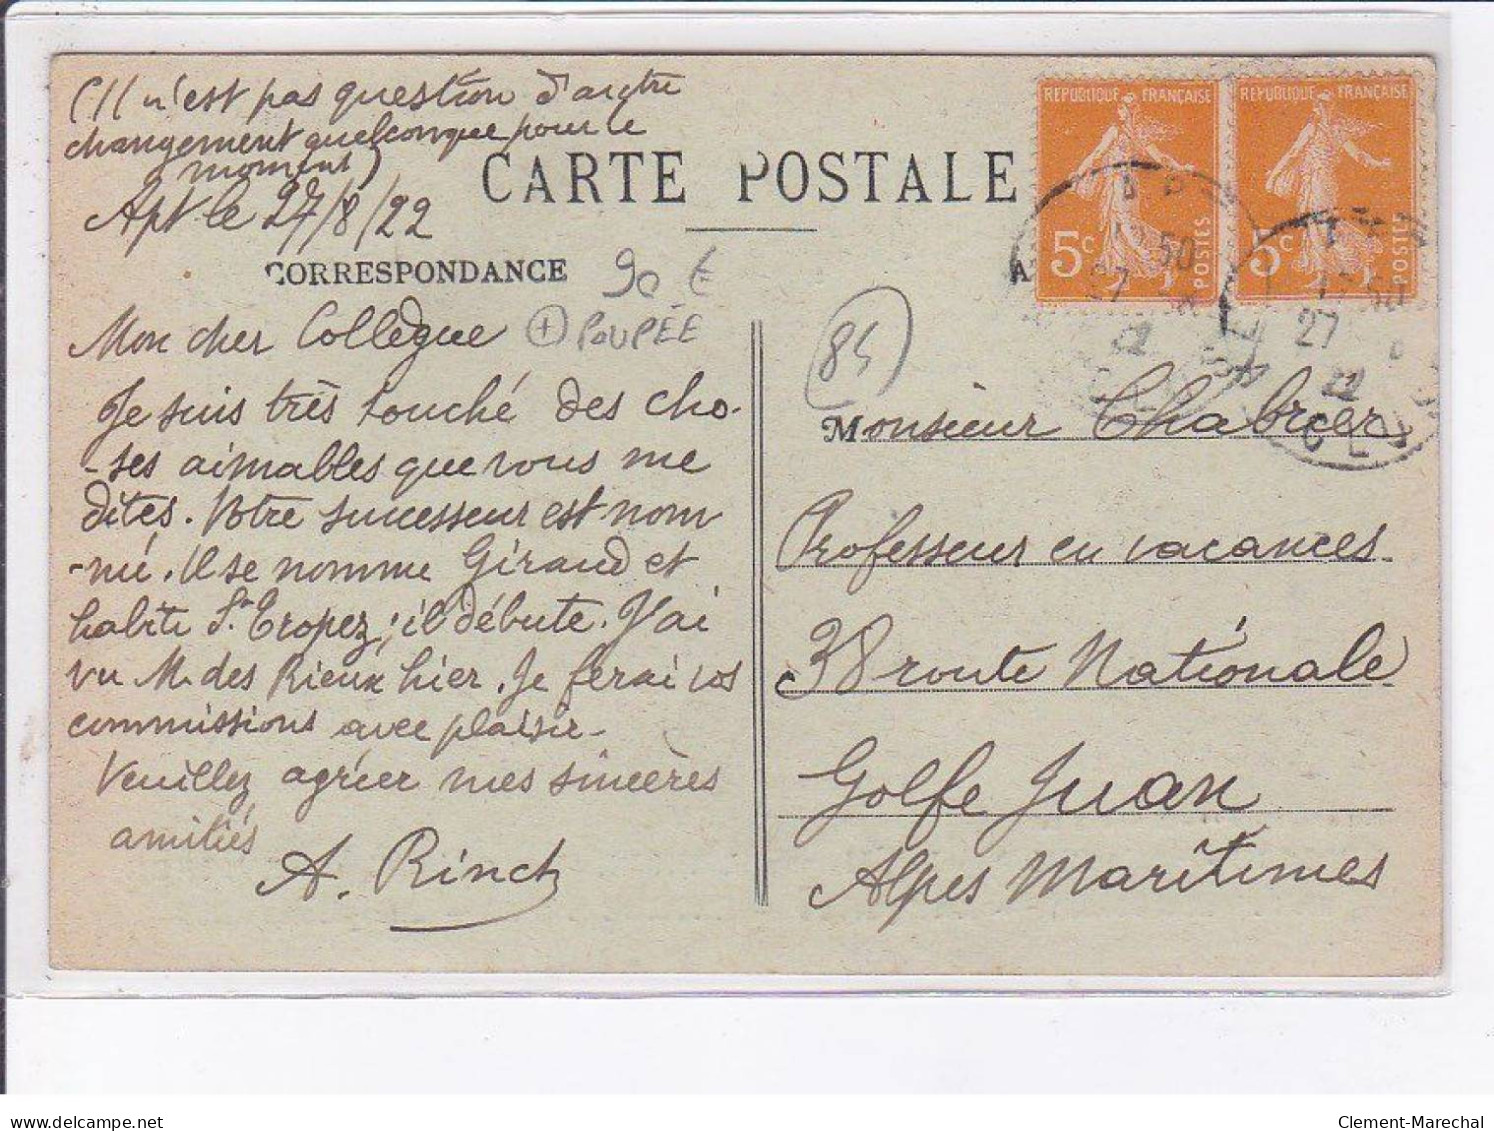 (Il n'est pas question d'autre
changement quelconque pour le
moment)
Apt le 27/8/22
CARTE POSTALE
CORRESPONDANCE
90 €
+ POUPÉE
(84)
REPUBLIQUE FRANÇAISE
5c
POSTES
REPUBLIQUE FRANÇAISE
5c
POSTES
Mon cher Collègue
Je suis très touché des cho-
-ses aimables que vous me
dites. Votre successeur est nom-
-mé. Il se nomme Giraud et
habite St Tropez; il débute. J'ai
vu M. des Rieux hier. Je ferai vos
commissions avec plaisir.
Veuillez agréer mes sincères
amitiés
A. Rinch
Monsieur Chabrier
Professeur en vacances
38 route Nationale
Golfe Juan
Alpes Maritimes
delcampe.net
Clement-Marechal